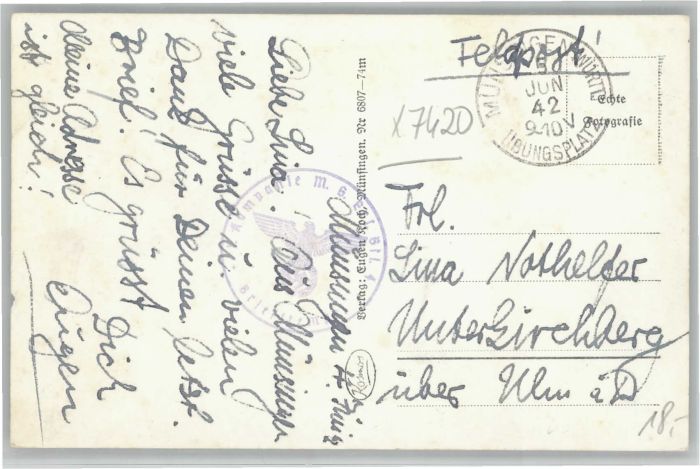 Münsingen 4. Juni
Liebe Lina! Aus Münsingen
viele Grüsse u. vielen
Dank für Deinen letzt.
Brief. Es grüsst Dich
Eugen
Meine Adresse
ist gleich!
Verlag: Eugen Koch, Münsingen. Nr 6807-74m
Feldpost!
MÜNSINGEN (WÜRTT)
5
JUN
42
9-10 V
ÜBUNGSPLATZ
Echte
Fotografie
x 7420
Frl.
Lina Nothelfer
Unterkirchberg
über Ulm a/D
18.-
Kompanie M. G.